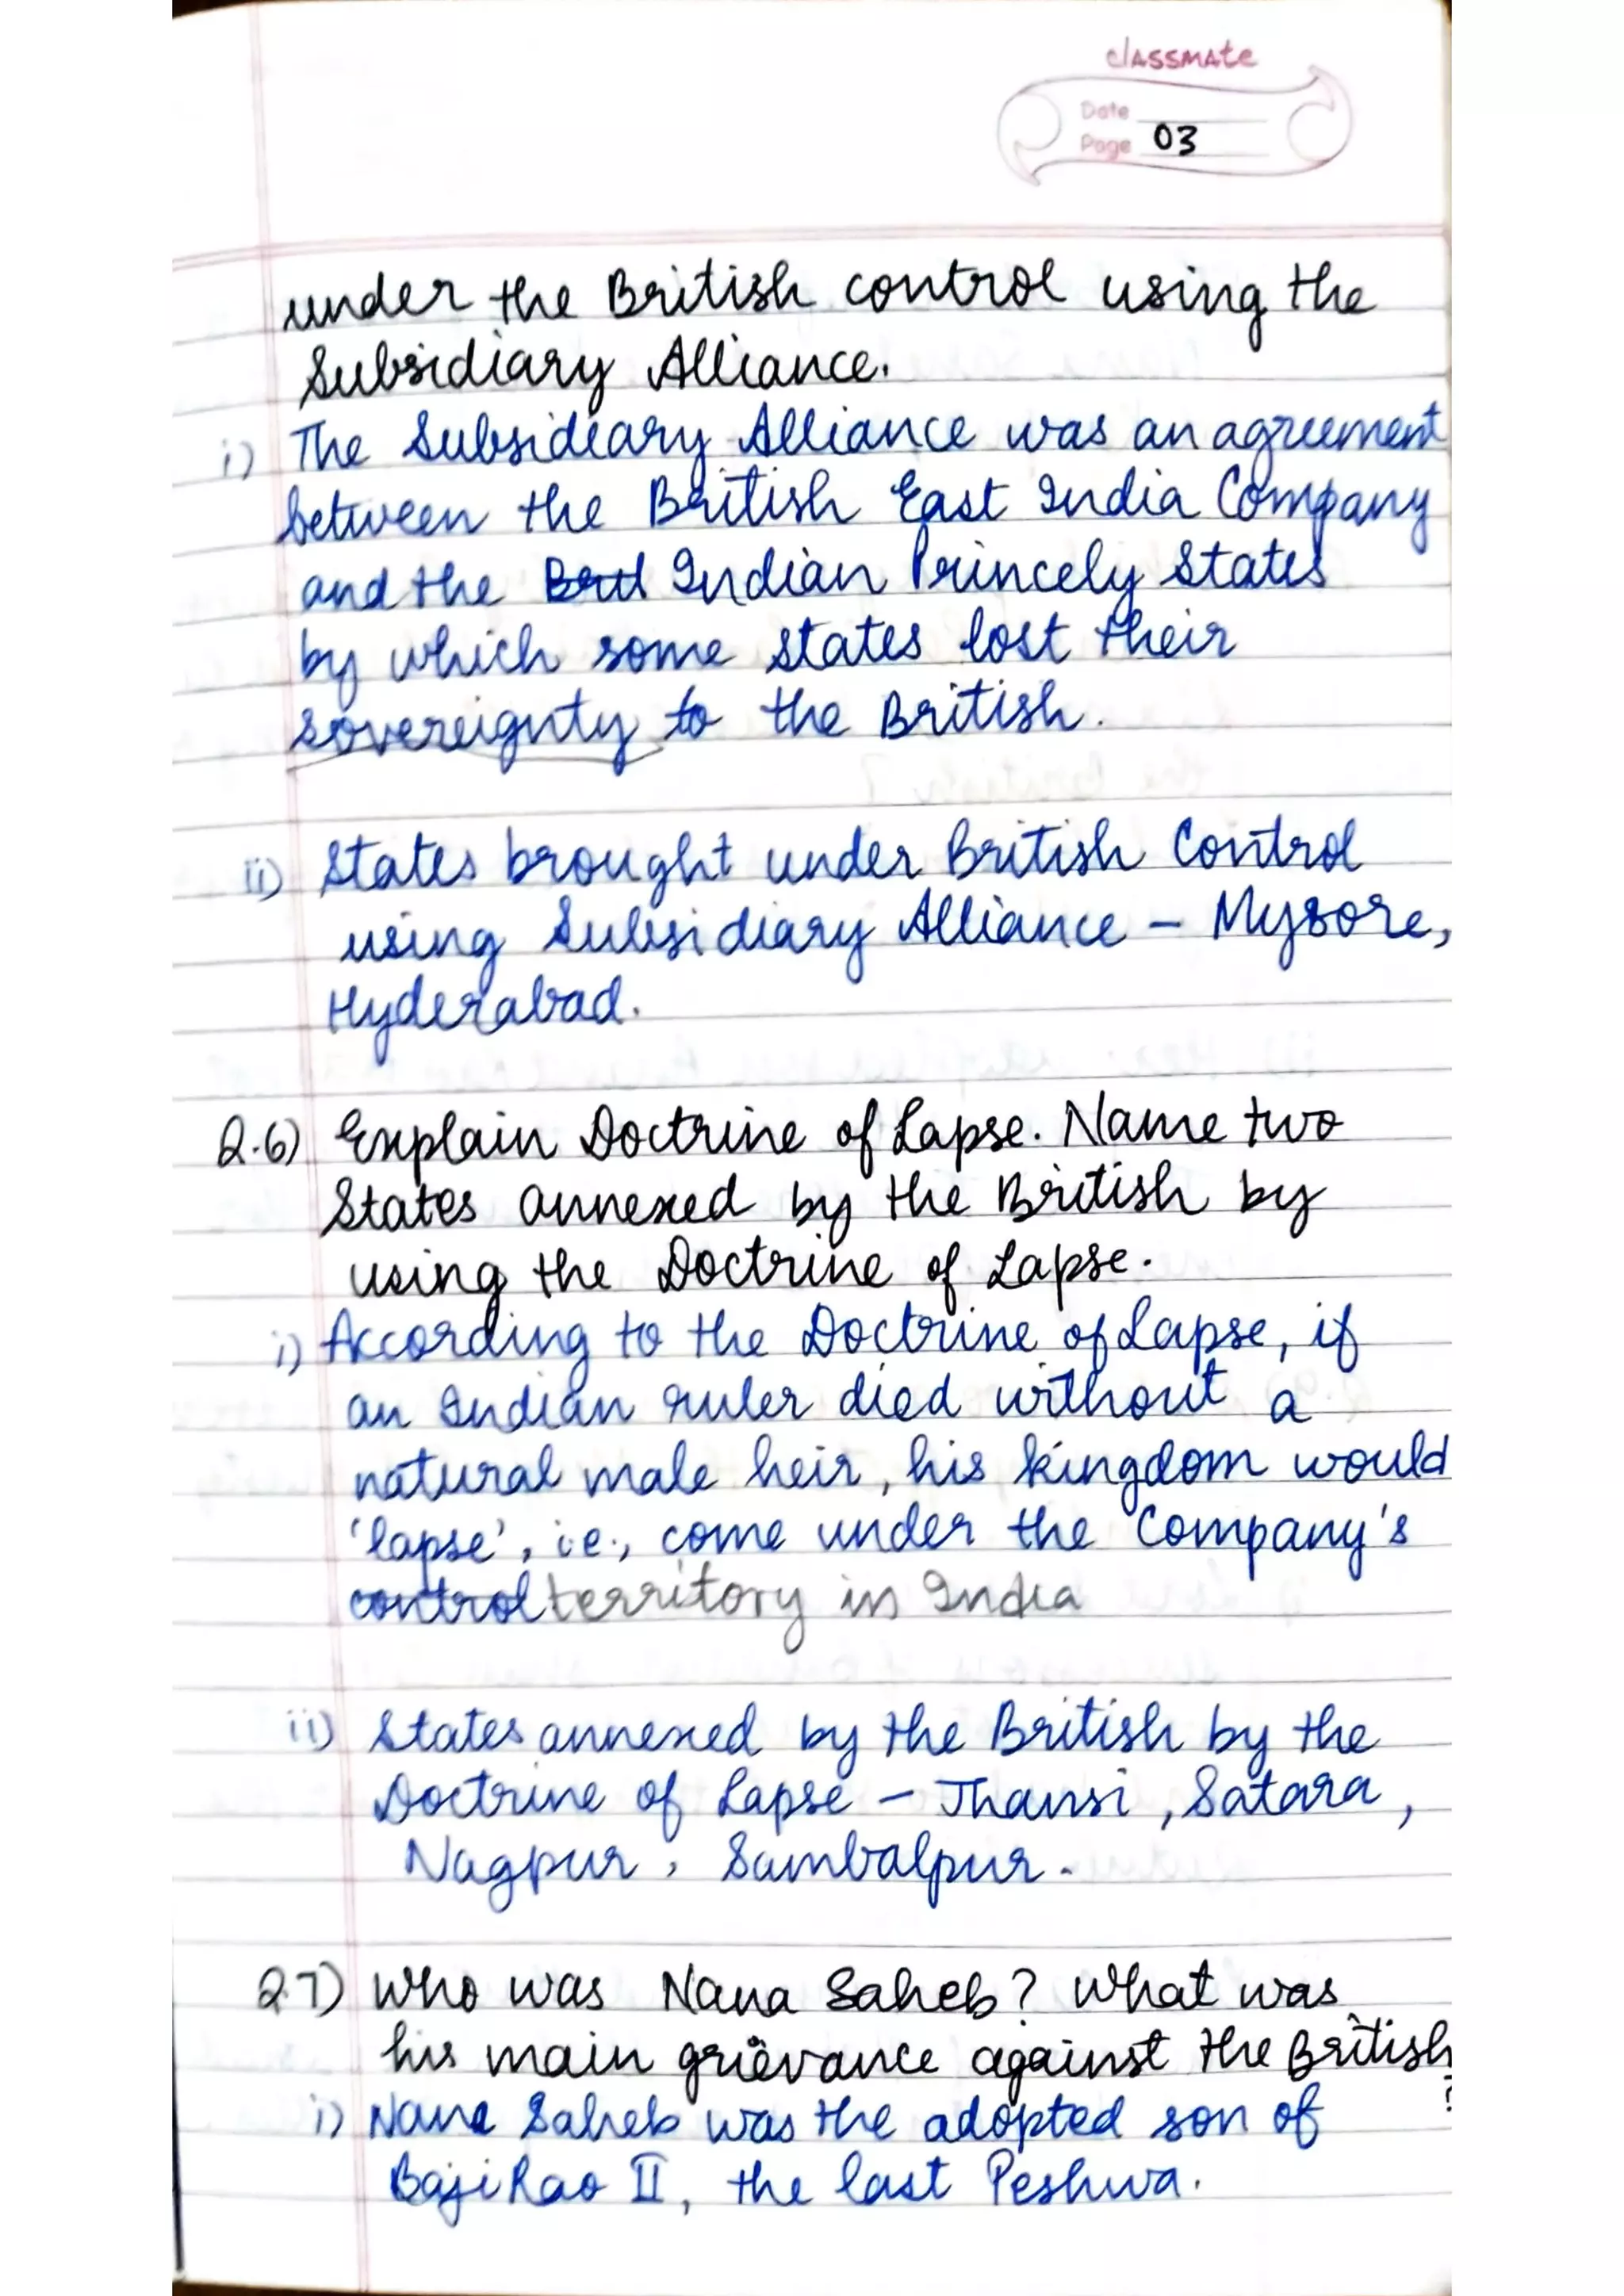 classmate
Date
Page 03
under the British control using the
Subsidiary Alliance.
i) The Subsidiary Alliance was an agreement
between the British East India Company
and the Brit Indian Princely States
by which some states lost their
sovereignty to the British.
ii) States brought under British Control
using Subsidiary Alliance – Mysore,
Hyderabad.
Q.6) Explain Doctrine of Lapse. Name two
States annexed by the British by
using the Doctrine of Lapse.
i) According to the Doctrine of Lapse, if
an Indian ruler died without a
natural male heir, his kingdom would
'lapse', i.e., come under the Company's
control territory in India
ii) States annexed by the British by the
Doctrine of Lapse – Jhansi, Satara,
Nagpur, Sambalpur.
Q.7) Who was Nana Saheb? What was
his main grievance against the British
?
i) Nana Saheb was the adopted son of
Baji Rao II, the last Peshwa.